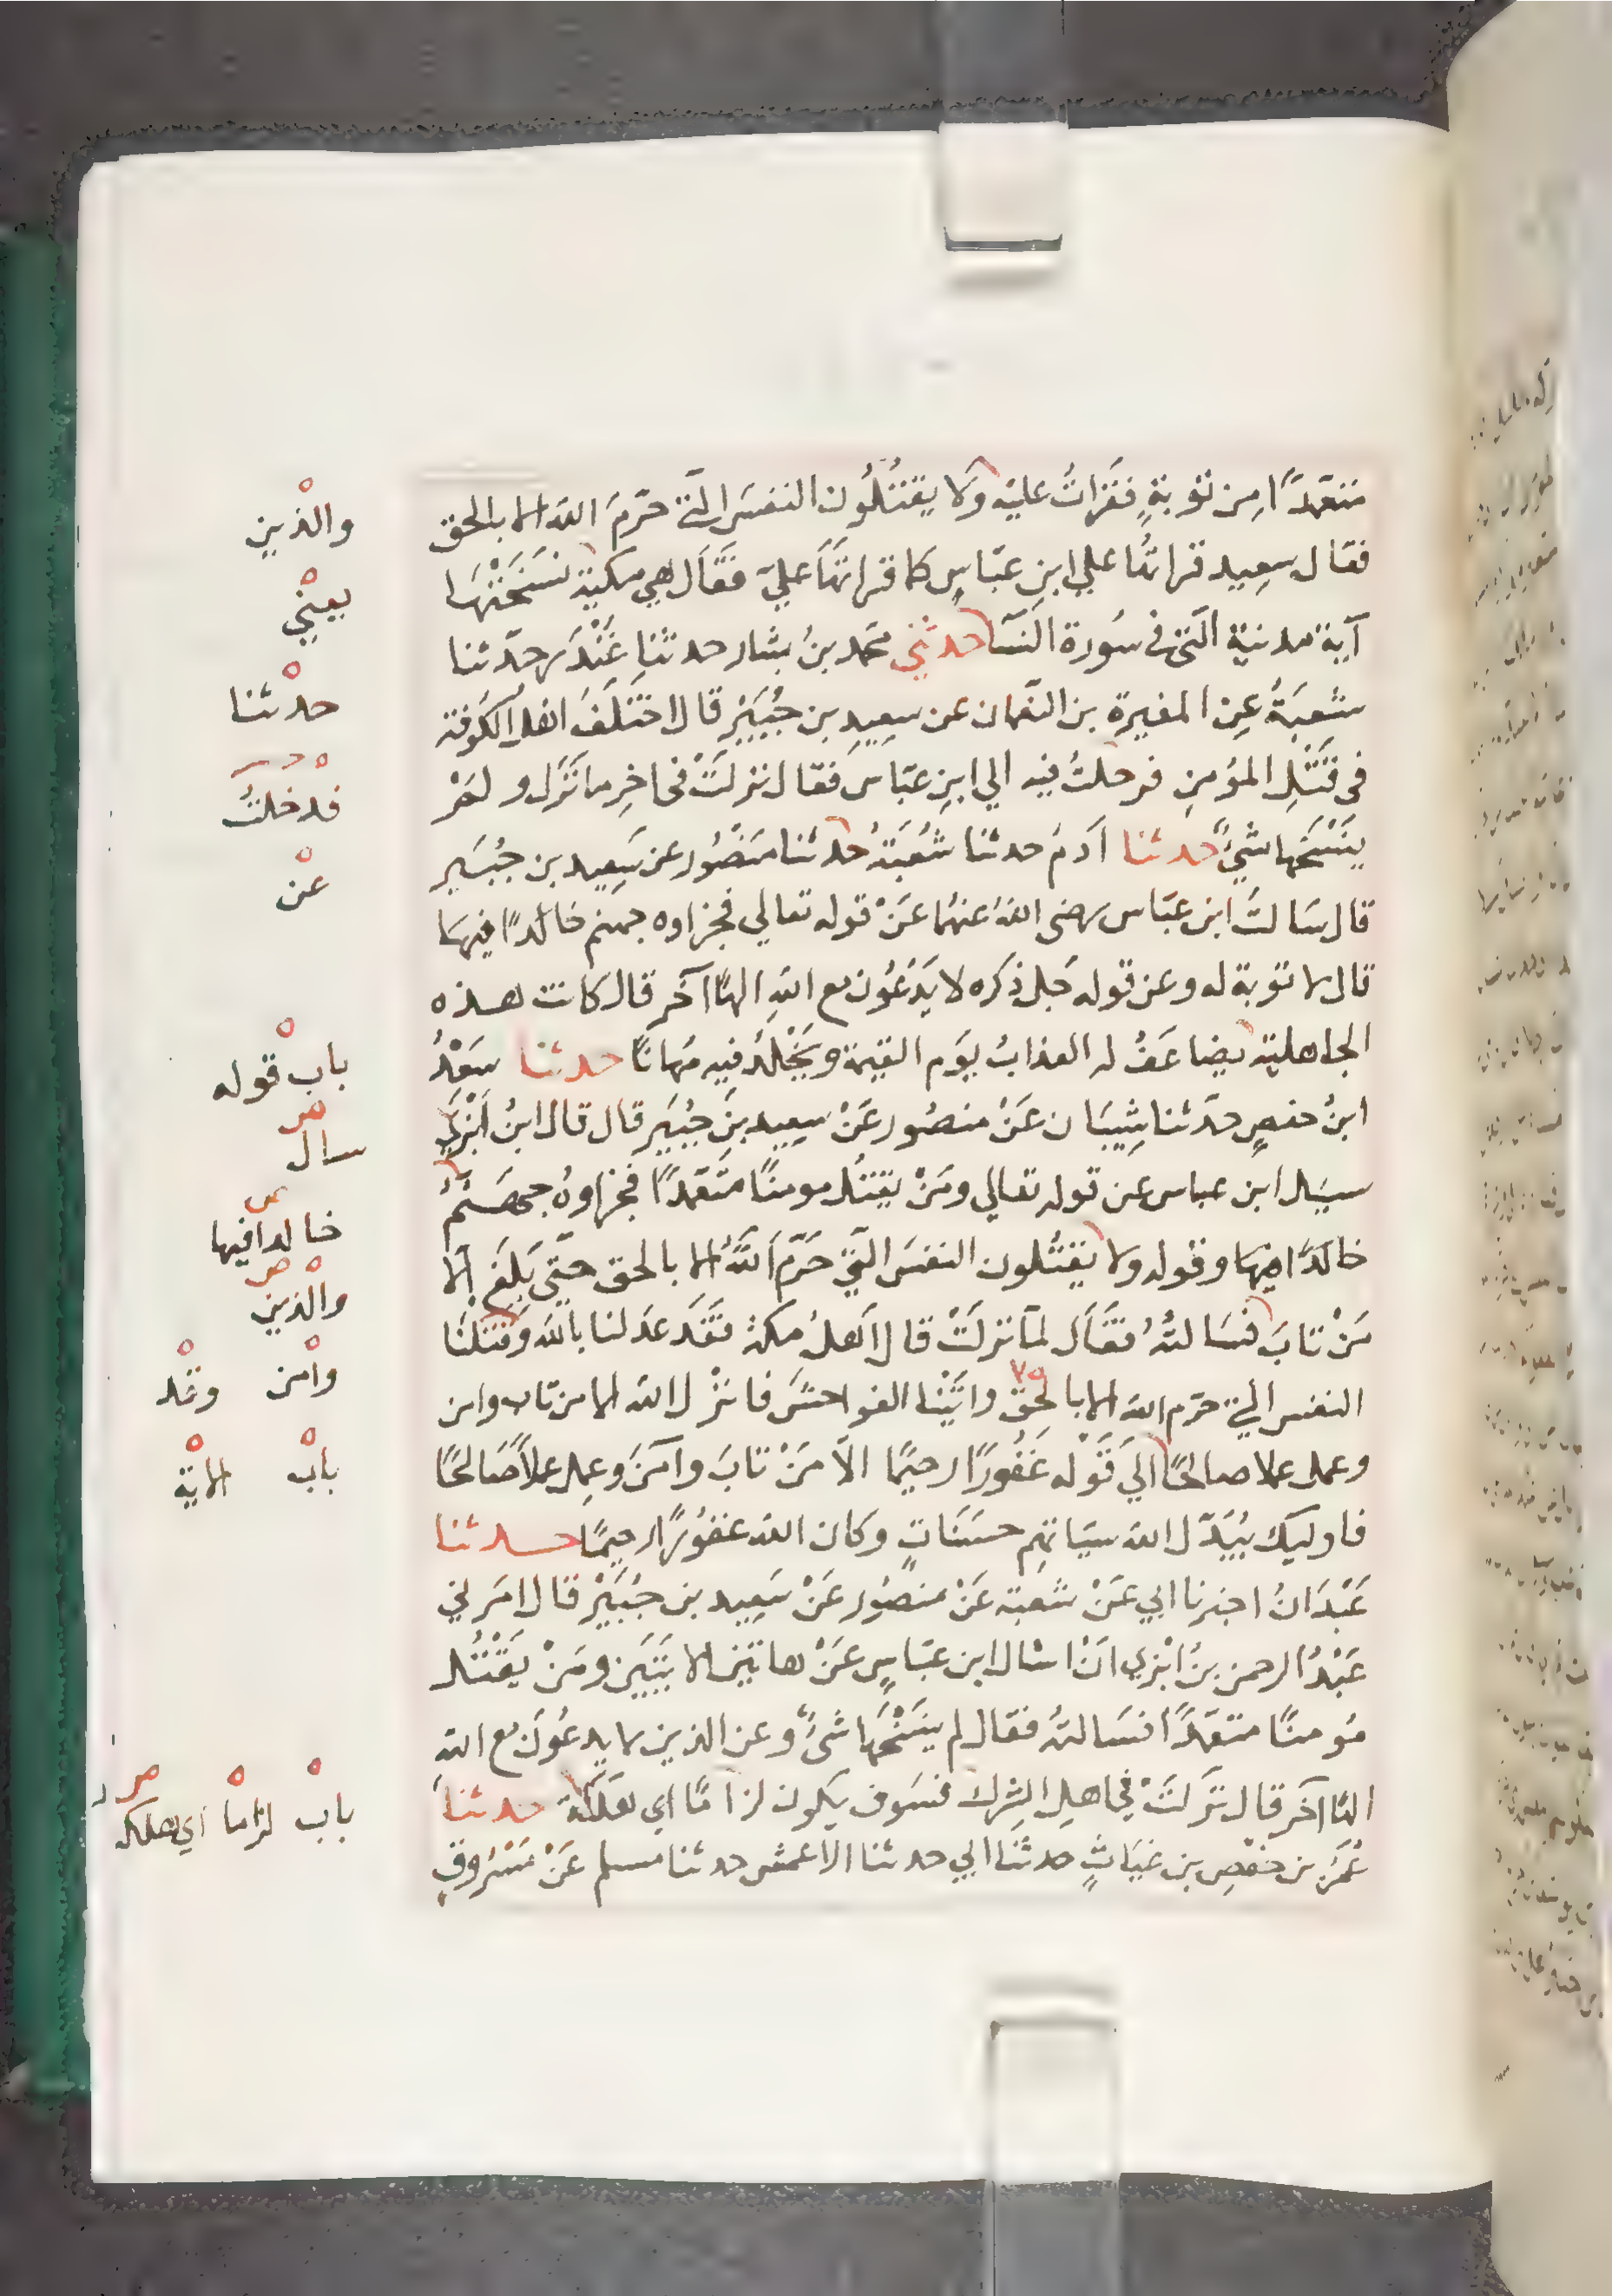 متعمدًا مِن توبةٍ فقراتُ عليه ولا يقتُلُون النفسَ الَّتي حَرَّمَ الله الا بالحق
فقال سعِيد قراتُها علي ابنِ عبّاسٍ كما قراتهَا عليّ فقَالَ هي مكية نَسَخَتْهَا
آية مدنية الّتى فى سُورة النّسَا حدثني محمد بنُ بشار حدثنا غُنْدَر حدّثنا
شعبَةُ عنِ المغيرة بن النعمان عن سعِيدِ بن جُبَيْر قال اختلَفَ اهلُ الكُوفة
فى قَتْلِ المؤمنِ فرحلتُ فيه الي ابنِ عبّاس فقال نزلَتْ فى اخِرِ ما نَزَل ولم
يَنْسَخْها شيٌ حدثنا آدمُ حدثنا شُعْبَةُ حدثنا مَنْصُور عن سَعِيد بن جُبَير
قال سَالتُ ابن عبّاس رضى الله عنهُما عَنْ قوله تعالي فجزاوه جهنم خالدًا فيهَا
قال لا توبة له وعن قوله جَل ذكره لا يَدْعُون مع اللهِ الهًا آخر قال كانت هذه
الجاهلية يضاعَفْ له العذابُ يوَم القيمة ويَخْلُدْ فيه مُهانًا حدثنا سعْدُ
ابنُ حفصٍ حدّثنا شيبَان عَنْ منصُور عَنْ سعِيد بنِ جُبَير قال قال ابنُ ابْزَي
سيل ابن عباس عن قوله تعالي ومَنْ يقتُل مومنًا متعمدًا فجزاوهُ جهنمُ
خالدًا فيها وقوله ولا يقتُلون النفسَ الّتي حَرّمَ اللَّهُ الا بالحق حتّى بَلَغَ الّا
مَنْ تابَ فسَالتُهُ فقَالَ لما نزلَتْ قال اهلُ مكة فقَد عدَلنا بالله وقتلنَا
النفس التي حرّم الله الا بالحق واتيْنا الفواحشَ فانزل الله الا من تاب وامن
وعمل عملا صالحًا اليَ قَوْله غَفُورًا رحيمًا الّا مَنْ تابَ وآمَنَ وعمِل عملًا صَالحًا
فاوليك يُبَدّل الله سيّاتهِم حسَنَاتٍ وكان الله غفوُرًا رحيمًا حدثنا
عَبْدَانُ اخبرنا ابي عَنْ شعبَة عَنْ منصُور عَنْ سَعِيد بن جُبَيْر قال امَرني
عَبْدُ الرحمن بنُ ابْزي انْ اسال ابن عبّاسٍ عَنْ هاتين الايتَيَن ومَنْ يَقْتُل
مُومنًا متعمّدًا فسَالتهُ فقال لم يَنسَخْهَا شىٌ وعن الذين لا يدعُونَ مع اللهِ
الهًا آخر قال نَزلَتْ فى اهلِ الشِرك فسَوف يكون لزامًا اي هَلَكَة حدثنا
عُمَرُ بن حفْصِ بن غيَاثٍ حدثنا ابي حدثنا الاعمش حدثنا مسلم عَنْ مَسْرُوقٍ
والذين
يعني
حدثنا
فدخلتُ
عن
باب قوله
سال
خالدا فيها
والذين
وامن وقد
باب الاية
باب لزاما اي هلكه